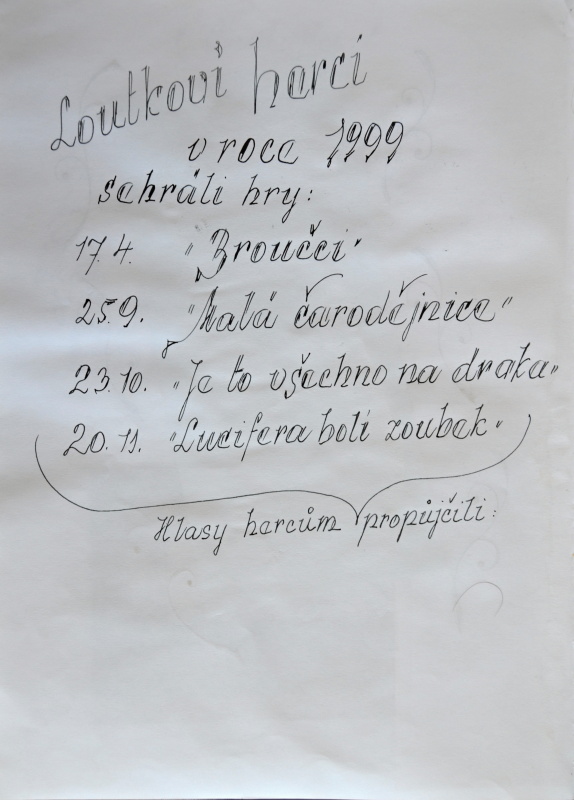 Loutkoví herci
v roce 1999
sehráli hry:
17.4. "Broučci"
25.9. "Malá čarodějnice"
23.10. "Je to všechno na draka"
20.11. "Lucifera bolí zoubek"
Hlasy hercům propůjčili: